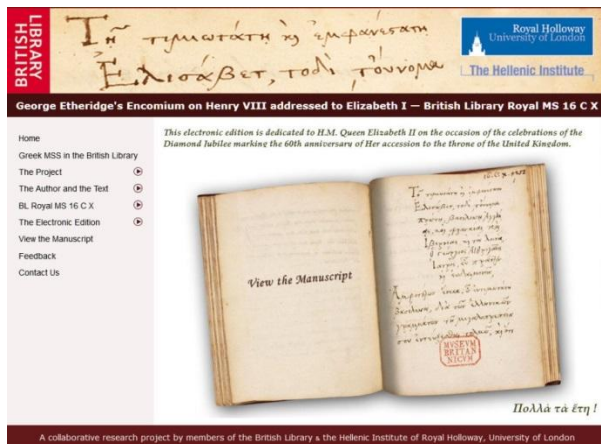 BRITISH
LIBRARY
Τῇ τιμιωτάτῃ κὶ ἐμφανεστάτῃ
Ἐλισάβετ, τοδὶ τοὔνομα
Royal Holloway
University of London
The Hellenic Institute
George Etheridge's Encomium on Henry VIII addressed to Elizabeth I — British Library Royal MS 16 C X
Home
Greek MSS in the British Library
The Project
The Author and the Text
BL Royal MS 16 C X
The Electronic Edition
View the Manuscript
Feedback
Contact Us
This electronic edition is dedicated to H.M. Queen Elizabeth II on the occasion of the celebrations of the
Diamond Jubilee marking the 60th anniversary of Her accession to the throne of the United Kingdom.
View the Manuscript
MVSEVM
BRITAN
NICVM
Πολλὰ τὰ ἔτη !
A collaborative research project by members of the British Library & the Hellenic Institute of Royal Holloway, University of London